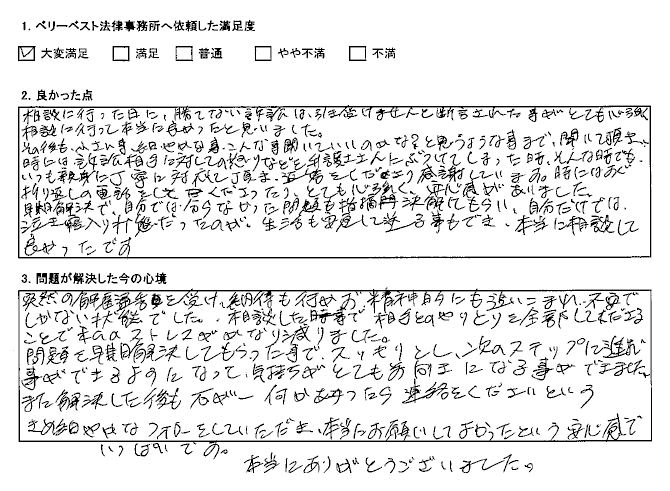 1. ベリーベスト法律事務所へ依頼した満足度
☑ 大変満足 □ 満足 □ 普通 □ やや不満 □ 不満
2. 良かった点
相談に行った日に、勝てない訴訟は、引き受けませんと断言された事がとても心強く
相談に行って本当に良かったと思いました。
その後も、小さい事、細かな事、こんな事聞いていいのかな?と思うような事まで、聞いて頂き、
時には訴訟相手に対しての怒りなどを弁護士さんにぶつけてしまった時、そんな時でも、
いつも親身に丁寧に対応して頂き、連絡をくださり感謝しています。時には
折り返しの電話をして下さったり、とても心強く、安心感がありました。
早期解決で、自分では分らなかった問題も指摘 解決してもらい、自分だけでは、
泣き寝入り状態だったのが、生活も安定して送る事もでき、本当に相談して
良かったです
3. 問題が解決した今の心境
突然の解雇通告を受け、納得も行かず、精神的にも追いこまれ、不安で
しかない状態でした。相談した時点で相手とのやりとりを全部してくださる
ことで私のストレスがかなり減りました。
問題を早期解決してもらった事で、スッキリとし、次のステップに進む
事ができるようになって、気持ちがとても前向きになる事ができました。
また解決した後も万が一何かあったら連絡をくださいという
きめ細やかなフォローをしていただき、本当にお願いしてよかったという安心感で
いっぱいです。
本当にありがとうございました。